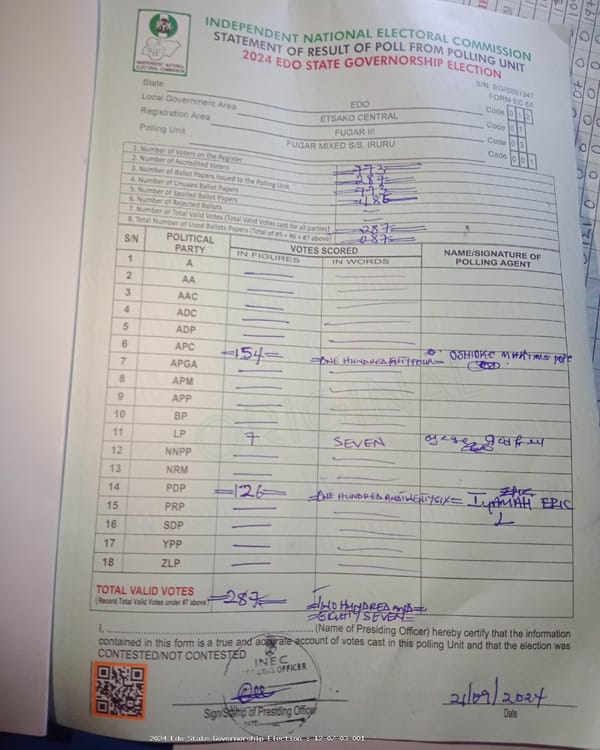 INDEPENDENT NATIONAL ELECTORAL COMMISSION
STATEMENT OF RESULT OF POLL FROM POLLING UNIT
2024 EDO STATE GOVERNORSHIP ELECTION
INEC
INDEPENDENT NATIONAL
ELECTORAL COMMISSION
S/N: EG/0001347
FORM EC 8A
State EDO Code 12
Local Government Area ETSAKO CENTRAL Code 07
Registration Area FUGAR III Code 03
Polling Unit FUGAR MIXED S/S, IRURU Code 001
1. Number of Voters on the Register =773=
2. Number of Accredited Voters =287=
3. Number of Ballot Papers Issued to the Polling Unit =773=
4. Number of Unused Ballot Papers =486=
5. Number of Spoiled Ballot Papers —
6. Number of Rejected Ballots —
7. Number of Total Valid Votes (Total Valid Votes cast for all parties) =287=
8. Total Number of Used Ballots Papers (Total of #5 + #6 + #7 above) =287=
S/N POLITICAL PARTY VOTES SCORED NAME/SIGNATURE OF POLLING AGENT
IN FIGURES IN WORDS
1 A — —
2 AA — —
3 AAC — —
4 ADC — —
5 ADP — —
6 APC =154= =ONE HUNDRED FIFTY FOUR=
7 APGA — —
8 APM — —
9 APP — —
10 BP — —
11 LP 7 SEVEN
12 NNPP — —
13 NRM — —
14 PDP =126= =ONE HUNDRED AND TWENTY SIX= IYAMAH ERIC
15 PRP — —
16 SDP — —
17 YPP — —
18 ZLP — —
TOTAL VALID VOTES =287= =TWO HUNDRED AND=
(Record Total Valid Votes under #7 above) =EIGHTY SEVEN=
I, (Name of Presiding Officer) hereby certify that the information
contained in this form is a true and accurate account of votes cast in this polling Unit and that the election was
CONTESTED/NOT CONTESTED
INEC
OFFICER
Sign/Stamp of Presiding Officer
21/09/2024
Date
2024 Edo State Governorship Election : 12-07-03-001